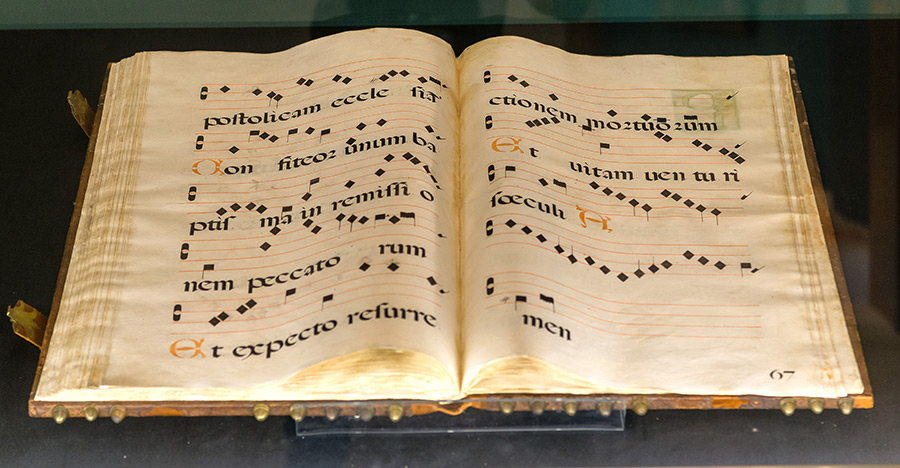 postolicam eccle siā
Con fiteor unum ba
ptis ma in remissi o
nem peccato rum
Et expecto resurre
ctionem mortuorum
Et uitam uen tu ri
sœculi A
men
67